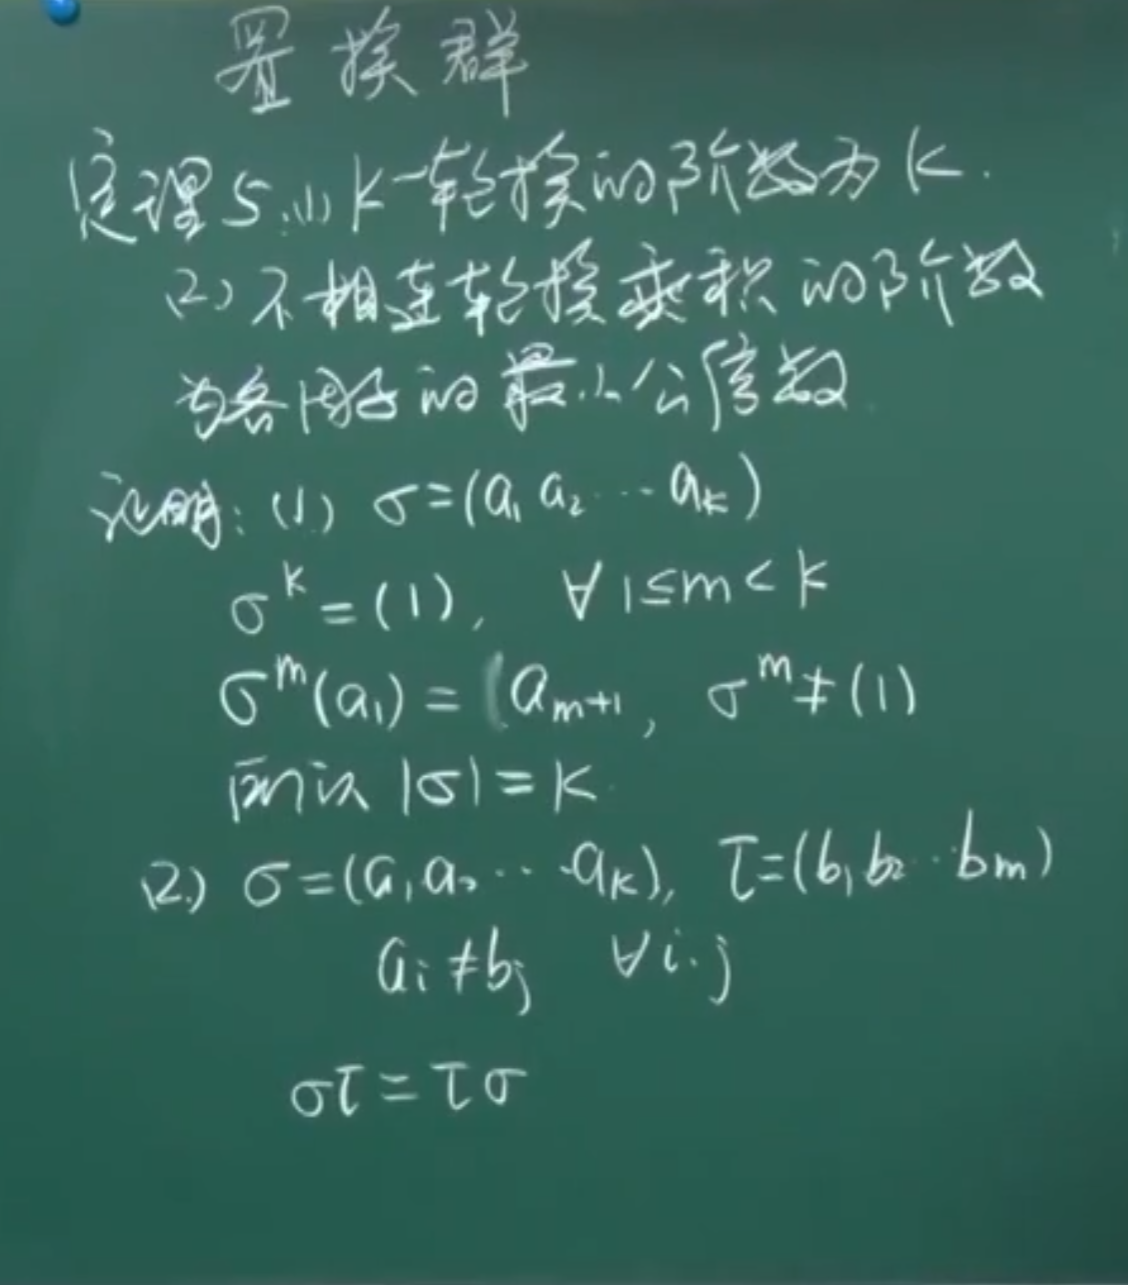 置换群
定理5.(1) k-轮换的阶数为k.
(2) 不相连轮换乘积的阶数
为各因子的最小公倍数
证明: (1) σ=(a₁ a₂ ⋯ aₖ)
σᵏ=(1), ∀ 1≤m<k
σᵐ(a₁) = (aₘ₊₁, σᵐ≠(1)
所以 |σ|=k.
(2.) σ=(a₁a₂⋯aₖ), τ=(b₁b₂⋯bₘ)
aᵢ≠bⱼ ∀i.j
στ=τσ